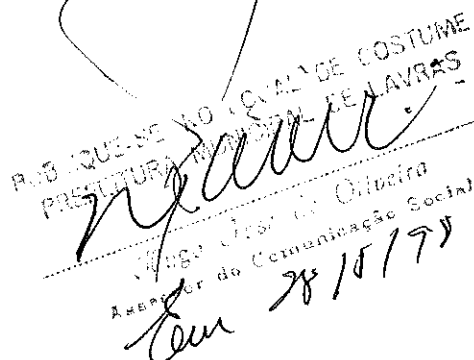 PUBLIQUE-SE NO LOCAL DE COSTUME
PREFEITURA MUNICIPAL DE LAVRAS
de Oliveira
Assessor de Comunicação Social
Em 28/5/98